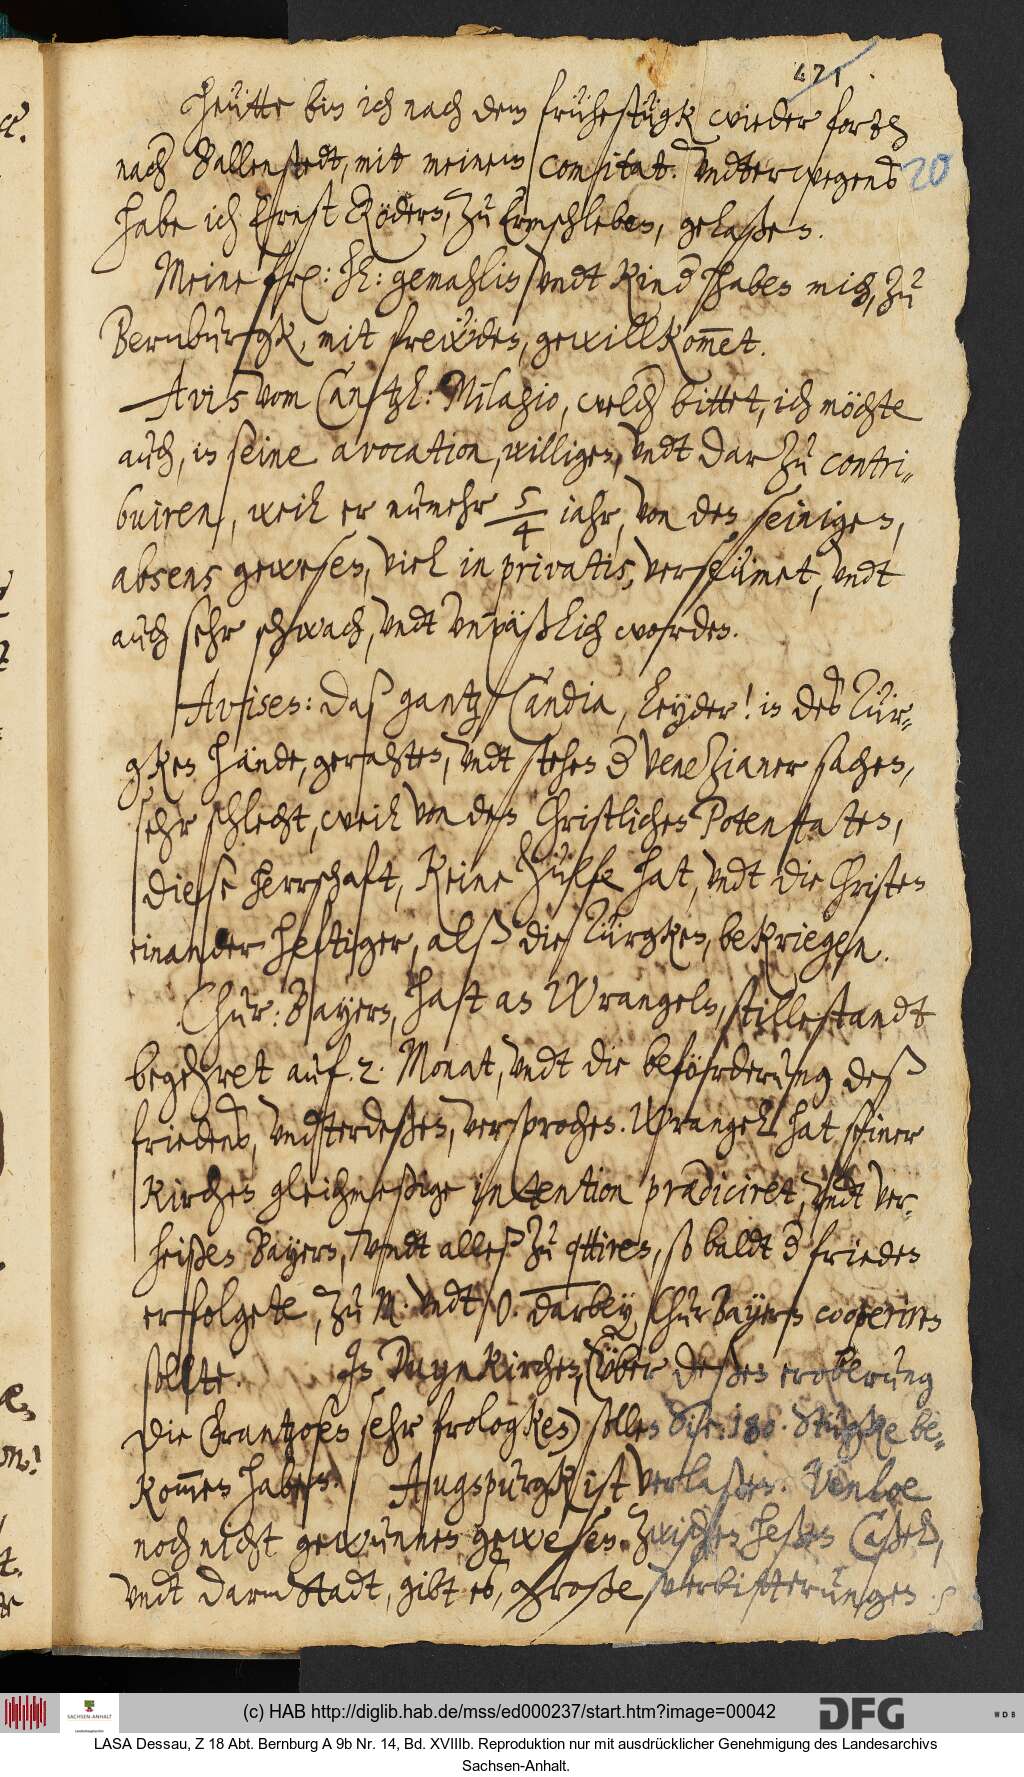 421
Heütte bin ich nach dem frühestügk wieder forth
nach Ballenstedt, mit meinem comitat. Vndterwegens 20
habe ich Ernst Röders, zu Ermschleben, gelaßen.
Meine frl: h: gemahlin vndt Kinder haben mich, zu
Bernburgk, mit frewden, gewillkom̅et.
Avis vom Cantzl: Milagio, welcher bittet, ich möchte
auch, in seine avocation, willigen, vndt darzu contri-
buiren, weil er numehr 5/4 iahr, von den seinigen,
absens gewesen, viel in privatis, verseümet, vndt
auch sehr schwach, vndt vnpäßlich worden.
Avisen: daß gantz Candia, leyder! in des Tür-
gken hände, gerahten, vndt stehen der Venezianer sachen,
sehr schlecht, weil von den Christlichen Potentaten,
diese herrschaft, keine hülfe hat, vndt die Christen
einander heftiger, alß die Türgken, bekriegen.
Chur: Bayern, hat an Wrangeln, stillestandt
begehret auf .2. Monat, vndt die beförderung deß
friedens, vndterdeßen, versprochen. Wrangel hat seiner
Kirchen gleichmeßige intention prædiciret, vndt ver-
heißen Bayern, vndt alleß zu qttiren, so baldt der frieden
erfolgete, zu M: vndt O. darbey Chur Bayern cooperiren
sollte. In Duynkirchen, (über deßen eroberung
die Frantzosen sehr frologken) sollen dise .180. Stügke be-
kom̅en haben. Augspurgk ist verlaßen. Venloe
noch nicht gewunnen gewesen. Zwischen Heßen Caßel,
vndt Darmstadt, gibt es, große verbitterungen.
(c) HAB http://diglib.hab.de/mss/ed000237/start.htm?image=00042
SACHSEN-ANHALT
DFG
WDB
LASA Dessau, Z 18 Abt. Bernburg A 9b Nr. 14, Bd. XVIIIb. Reproduktion nur mit ausdrücklicher Genehmigung des Landesarchivs
Sachsen-Anhalt.